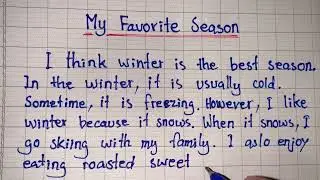 My Favorite Season
I think winter is the best season.
In the winter, it is usually cold.
Sometime, it is freezing. However, I like
winter because it snows. When it snows, I
go skiing with my family. I aslo enjoy
eating roasted sweet